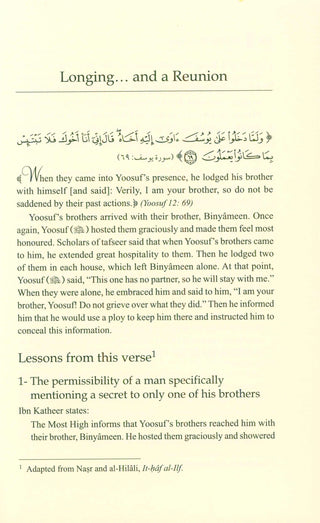 Longing... and a Reunion
﴿ وَلَمَّا دَخَلُوا عَلَىٰ يُوسُفَ ءَاوَىٰٓ إِلَيْهِ أَخَاهُ ۖ قَالَ إِنِّىٓ أَنَا۠ أَخُوكَ فَلَا تَبْتَئِسْ
بِمَا كَانُوا۟ يَعْمَلُونَ ٦٩ ﴾ (سورة يوسف: ٦٩)
﴾When they came into Yoosuf's presence, he lodged his brother
with himself [and said]: Verily, I am your brother, so do not be
saddened by their past actions.﴿ (Yoosuf 12: 69)
Yoosuf's brothers arrived with their brother, Binyâmeen. Once
again, Yoosuf (ﷺ) hosted them graciously and made them feel most
honoured. Scholars of tafseer said that when Yoosuf's brothers came
to him, he extended great hospitality to them. Then he lodged two
of them in each house, which left Binyâmeen alone. At that point,
Yoosuf (ﷺ) said, "This one has no partner, so he will stay with me."
When they were alone, he embraced him and said to him, "I am your
brother, Yoosuf! Do not grieve over what they did." Then he informed
him that he would use a ploy to keep him there and instructed him to
conceal this information.
Lessons from this verse1
1- The permissibility of a man specifically
mentioning a secret to only one of his brothers
Ibn Katheer states:
The Most High informs that Yoosuf's brothers reached him with
their brother, Binyâmeen. He hosted them graciously and showered
1 Adapted from Naṣr and al-Hilâli, It-ḥâf al-Ilf.